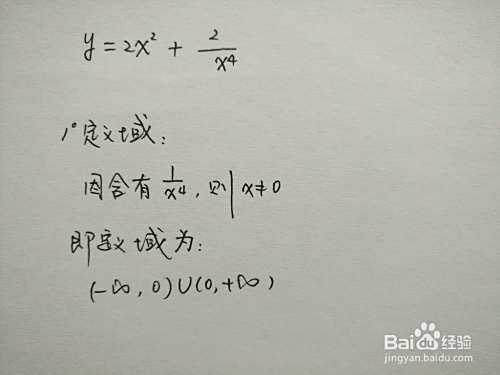 y = 2x² + 2/x⁴
1° 定义域:
因含有 1/x⁴, 则 | x≠0
即定义域为:
(-∞, 0)∪(0, +∞)
Bai du 经验
jingyan.baidu.com